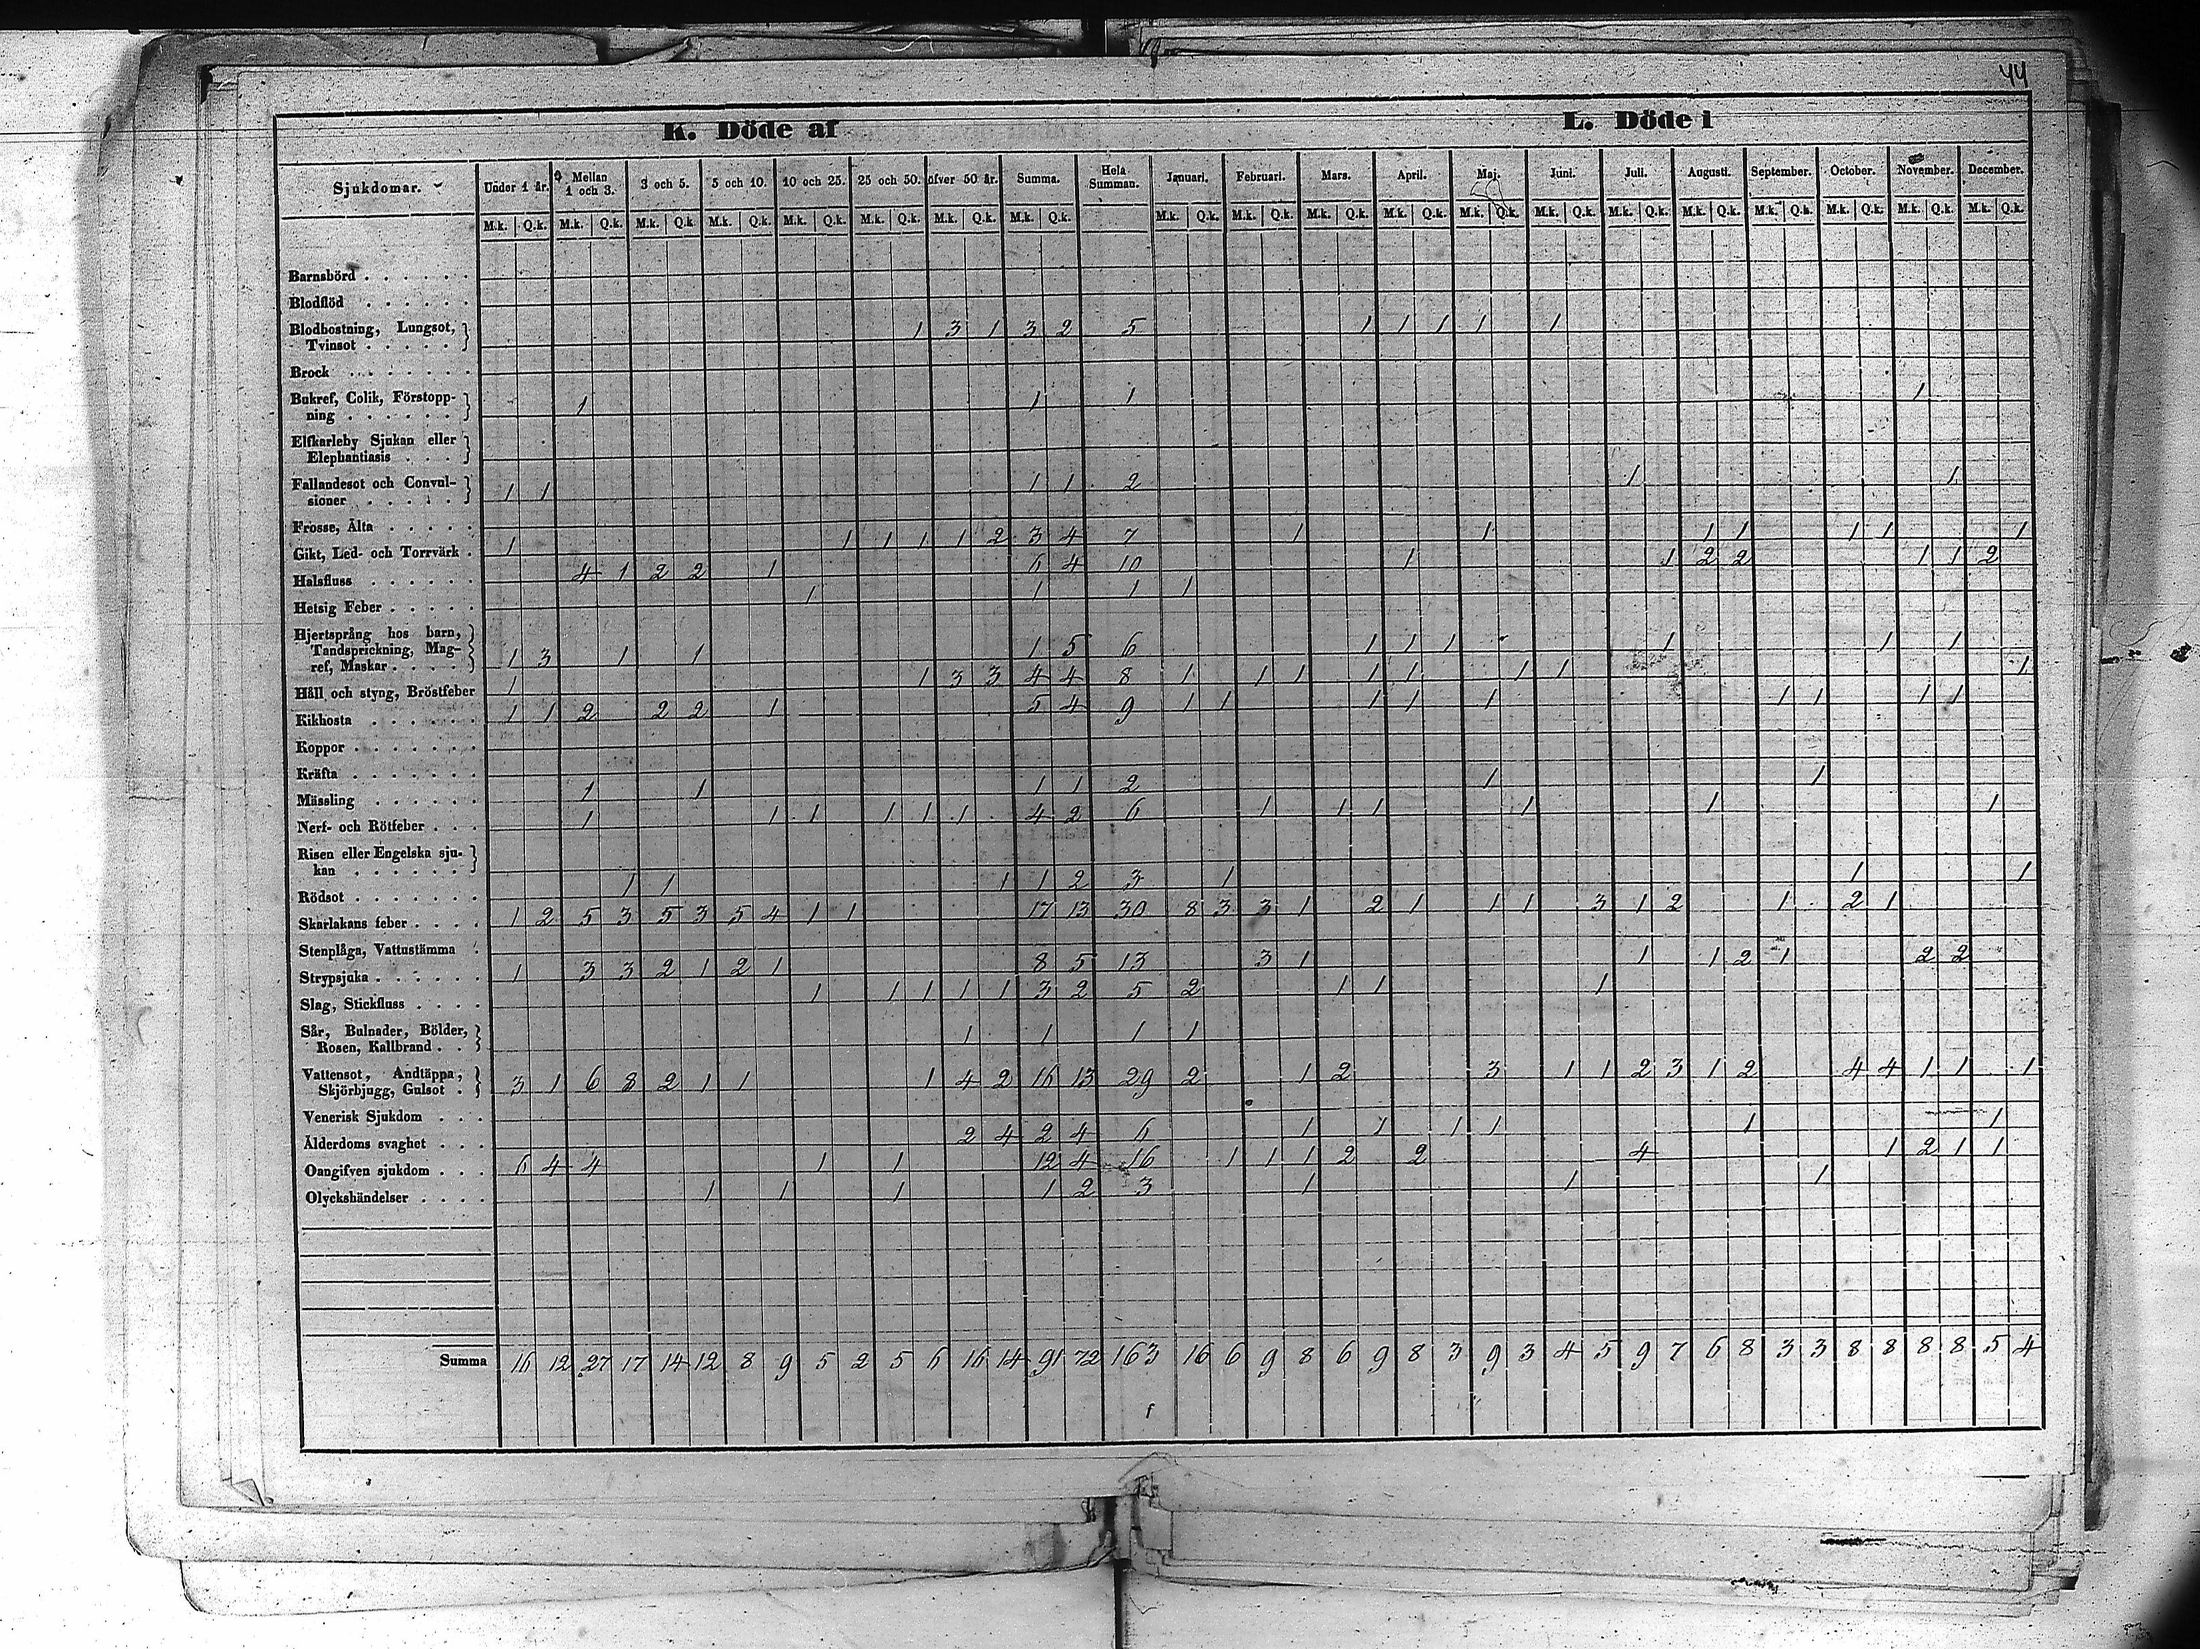 44
K. Döde af L. Döde i
Sjukdomar. Under 1 år. Mellan 1 och 3. 3 och 5. 5 och 10. 10 och 25. 25 och 50. öfver 50 år. Summa. Hela Summan. Januari. Februari. Mars. April. Maj. Juni. Juli. Augusti. September. October. November. December.
M.k. Q.k. M.k. Q.k. M.k. Q.k. M.k. Q.k. M.k. Q.k. M.k. Q.k. M.k. Q.k. M.k. Q.k. M.k. Q.k. M.k. Q.k. M.k. Q.k. M.k. Q.k. M.k. Q.k. M.k. Q.k. M.k. Q.k. M.k. Q.k. M.k. Q.k. M.k. Q.k. M.k. Q.k. M.k. Q.k.
Barnsbörd . . . . . .
Blodflöd . . . . . .
Blodhostning, Lungsot, 1 3 1 3 2 5 1 1 1 1 1
Tvinsot . . . . .
Brock . . . . . . .
Bukref, Colik, Förstopp- 1 1 1 1
ning . . . . . .
Elfkarleby Sjukan eller
Elephantiasis . . .
Fallandesot och Convul- 1 1 1 1 2 1 1
sioner . . . . .
Frosse, Älta . . . . .
Gikt, Led- och Torrvärk . 1 1 1 1 1 2 3 4 7 1 1 1 1 1 1 1
Halsfluss . . . . . . 4 1 2 2 1 6 4 10 1 1 2 2 1 1 2
Hetsig Feber . . . . . 1 1 1 1
Hjertsprång hos barn,
Tandsprickning, Mag-
ref, Maskar . . . . 1 3 1 1 1 5 6 1 1 1 1 1 1
Håll och styng, Bröstfeber 1 1 3 3 4 4 8 1 1 1 1 1 1 1 1
Kikhosta . . . . . . 1 1 2 2 2 1 5 4 9 1 1 1 1 1 1 1 1 1
Koppor . . . . . . .
Kräfta . . . . . . .
Mässling . . . . . . 1 1 1 1 2 1 1
Nerf- och Rötfeber . . . 1 1 1 1 1 1 4 2 6 1 1 1 1 1 1
Risen eller Engelska sju-
kan . . . . . .
Rödsot . . . . . . . 1 1 1 1 2 3 1 1 1
Skarlakans feber . . . . 1 2 5 3 5 3 5 4 1 1 17 13 30 8 3 3 1 2 1 1 1 3 1 2 1 2 1
Stenplåga, Vattustämma .
Strypsjuka . . . . . . 1 3 3 2 1 2 1 8 5 13 3 1 1 1 2 1 2 2
Slag, Stickfluss . . . . 1 1 1 1 1 3 2 5 2 1 1 1
Sår, Bulnader, Bölder, 1 1 1 1
Rosen, Kallbrand . .
Vattensot, Andtäppa, 3 1 6 8 2 1 1 1 4 2 16 13 29 2 1 2 3 1 1 2 3 1 2 4 4 1 1 1
Skjörbjugg, Gulsot .
Venerisk Sjukdom . . .
Ålderdoms svaghet . . . 2 4 2 4 6 1 1 1 1 1 1
Oangifven sjukdom . . . 6 4 4 1 1 12 4 16 1 1 1 2 2 4 1 2 1 1
Olyckshändelser . . . . 1 1 1 1 2 3 1 1 1
Summa 16 12 27 17 14 12 8 9 5 2 5 6 16 14 91 72 163 16 6 9 8 6 9 8 3 9 3 4 5 9 7 6 8 3 3 8 8 8 8 5 4